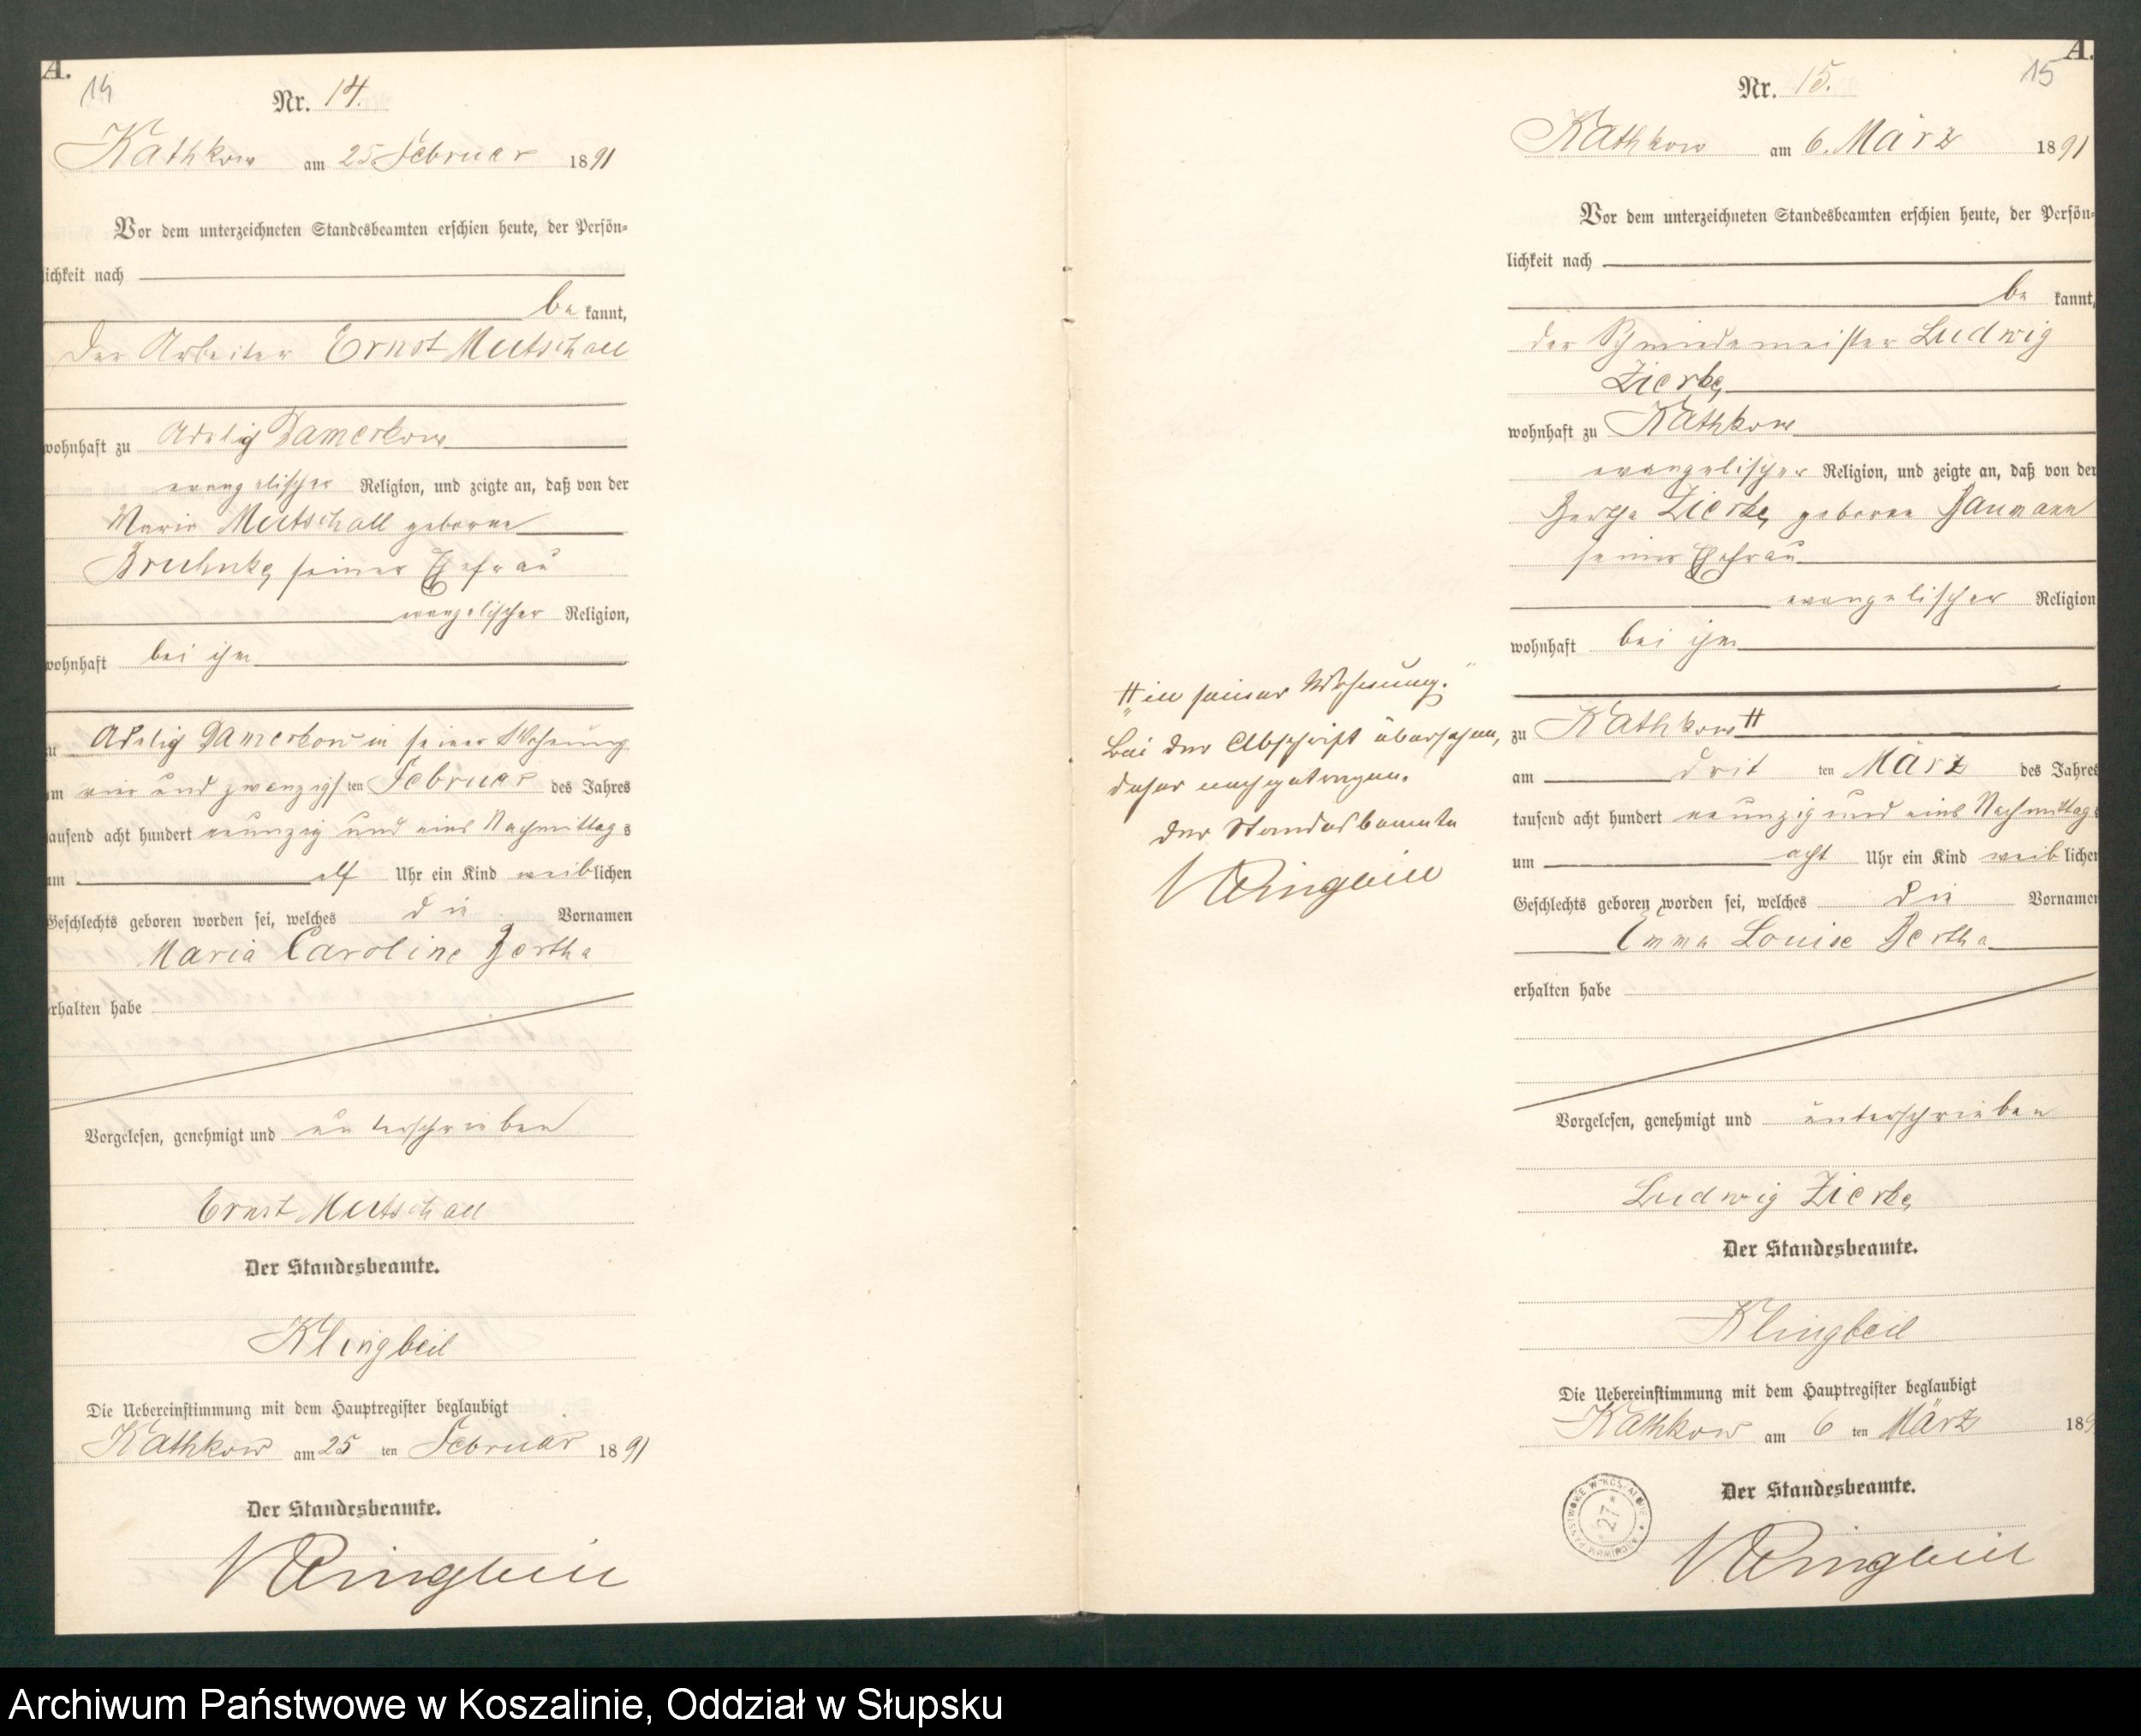 A.
14
Nr. 14.
Kathkow am 25 Februar 1891
Vor dem unterzeichneten Standesbeamten erschien heute, der Persön-
lichkeit nach
be kannt,
der Arbeiter Ernst Mutschall
wohnhaft zu Adelig Damerkow
evangelischer Religion, und zeigte an, daß von der
Marie Mutschall geborene
Bruhnke, seiner Ehefrau
evangelischer Religion,
wohnhaft bei ihm
zu Adelig Damerkow in seiner Wohnung
am vier und zwanzigsten Februar des Jahres
tausend acht hundert neunzig und eins Nachmittags
um elf Uhr ein Kind weiblichen
Geschlechts geboren worden sei, welches die Vornamen
Maria Caroline Bertha
erhalten habe
Vorgelesen, genehmigt und unterschrieben
Ernst Mutschall
Der Standesbeamte.
Klingbeil
Die Uebereinstimmung mit dem Hauptregister beglaubigt
Kathkow am 25 ten Februar 1891
Der Standesbeamte.
Klingbeil
# in seiner Wohnung."
Bei der Abschrift übersehen,
daher nachgetragen.
Der Standesbeamte
Klingbeil
A.
15
Nr. 15.
Kathkow am 6. März 1891
Vor dem unterzeichneten Standesbeamten erschien heute, der Persön-
lichkeit nach
be kannt,
der Schmiedemeister Ludwig
Zierke,
wohnhaft zu Kathkow
evangelischer Religion, und zeigte an, daß von der
Bertha Zierke, geborene Baumann
seiner Ehefrau
evangelischer Religion
wohnhaft bei ihm
zu Kathkow #
am drit ten März des Jahres
tausend acht hundert neunzig und eins Nachmittags
um acht Uhr ein Kind weiblichen
Geschlechts geboren worden sei, welches die Vornamen
Emma Louise Bertha
erhalten habe
Vorgelesen, genehmigt und unterschrieben
Ludwig Zierke,
Der Standesbeamte.
Klingbeil
Die Uebereinstimmung mit dem Hauptregister beglaubigt
Kathkow am 6 ten März 189
Der Standesbeamte.
ARCHIWUM PAŃSTWOWE W KOSZALINIE * 27 *
Klingbeil
Archiwum Państwowe w Koszalinie, Oddział w Słupsku